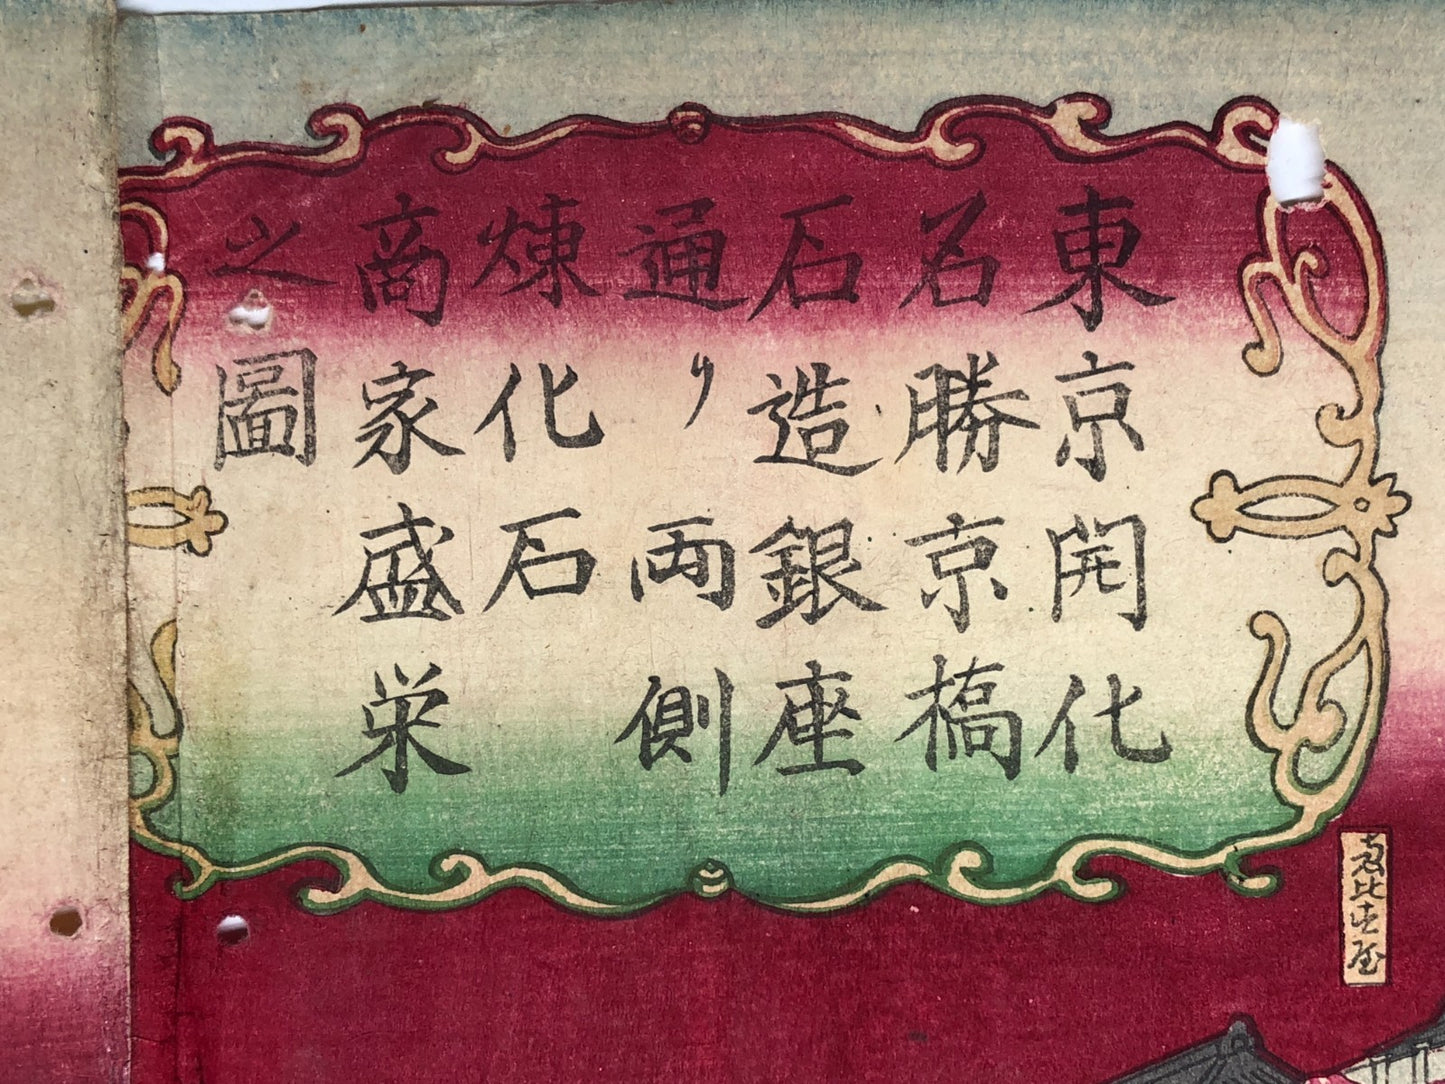 東京開化
名勝京橋
石造銀座
通り両側
煉化石
商家盛栄
之圖